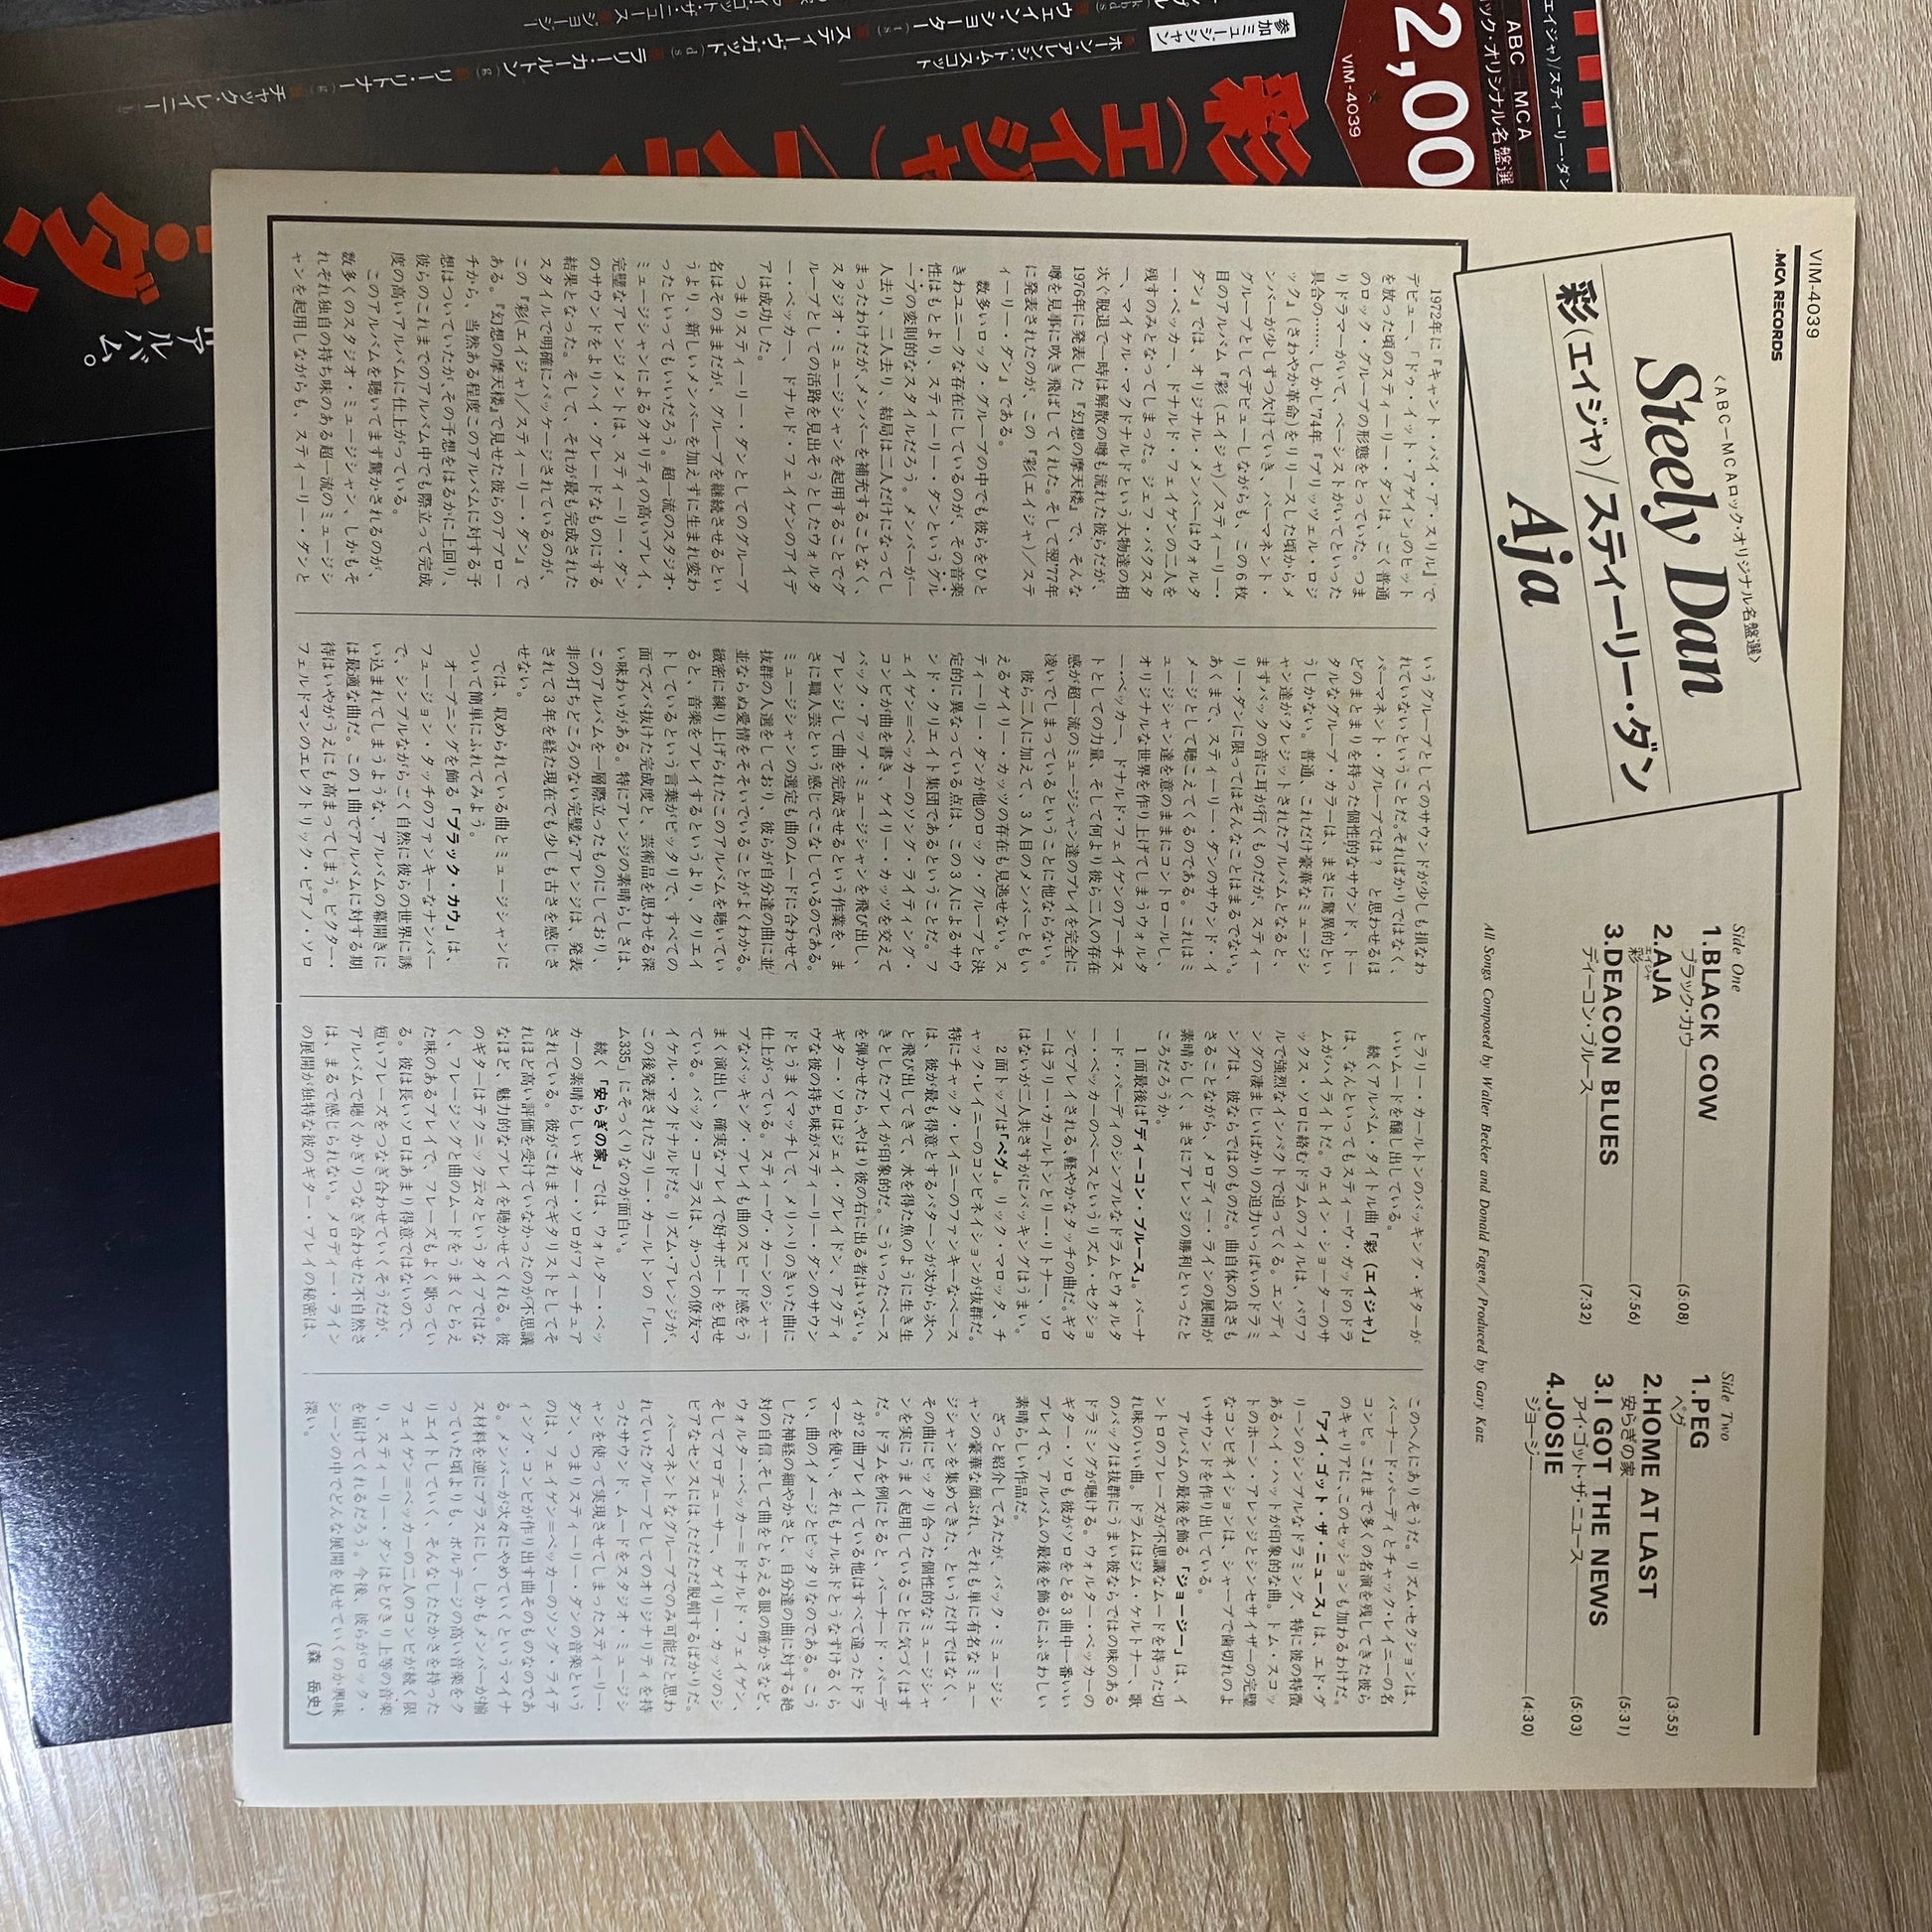 VIM-4039
MCA RECORDS
〈ABC—MCAロック・オリジナル名盤選〉
Steely Dan
彩(エイジャ)/スティーリー・ダン
Aja
Side One
1.BLACK COW (5:08)
ブラック・カウ
2.AJA (7:56)
彩
エイジャ
3.DEACON BLUES (7:32)
ディーコン・ブルース
Side Two
1.PEG (3:55)
ペグ
2.HOME AT LAST (5:31)
安らぎの家
3.I GOT THE NEWS (5:03)
アイ・ゴット・ザ・ニュース
4.JOSIE (4:30)
ジョージー
All Songs Composed by Walter Becker and Donald Fagen/Produced by Gary Katz
1972年に『キャント・バイ・ア・スリル』で
デビュー、「ドゥ・イット・アゲイン」のヒット
を放った頃のスティーリー・ダンは、ごく普通
のロック・グループの形態をとっていた。つま
りドラマーがいて、ベーシストがいてといった
具合の……、しかし'74年『プリッツェル・ロジ
ック』(さわやか革命)をリリースした頃からメ
ンバーが少しずつ欠けていき、パーマネント・
グループとしてデビューしながらも、この6枚
目のアルバム『彩(エイジャ)/スティーリー・
ダン』では、オリジナル・メンバーはウォルタ
ー・ベッカー、ドナルド・フェイゲンの二人を
残すのみとなってしまった。ジェフ・バクスタ
ー、マイケル・マクドナルドという大物達の相
次ぐ脱退で一時は解散の噂も流れた彼らだが、
1976年に発表した『幻想の摩天楼』で、そんな
噂を見事に吹き飛ばしてくれた。そして翌'77年
に発表されたのが、この『彩(エイジャ)/ステ
ィーリー・ダン』である。
数多いロック・グループの中でも彼らをひと
きわユニークな存在にしているのが、その音楽
性はもとより、スティーリー・ダンというグル
ープの変則的なスタイルだろう。メンバーが一
人去り、二人去り、結局は二人だけになってし
まったわけだが、メンバーを補充することなく、
スタジオ・ミュージシャンを起用することでグ
ループとしての活路を見出そうとしたウォルタ
ー・ベッカー、ドナルド・フェイゲンのアイデ
アは成功した。
つまりスティーリー・ダンとしてのグループ
名はそのままだが、グループを継続させるとい
うより、新しいメンバーを加えずに生まれ変わ
ったといってもいいだろう。超一流のスタジオ・
ミュージシャンによるクオリティの高いプレイ、
完璧なアレンジメントは、スティーリー・ダン
のサウンドをよりハイ・グレードなものにする
結果となった。そして、それが最も完成された
スタイルで明確にパッケージされているのが、
この『彩(エイジャ)/スティーリー・ダン』で
ある。『幻想の摩天楼』で見せた彼らのアプロー
チから、当然ある程度このアルバムに対する予
想はついていたが、その予想をはるかに上回り、
彼らのこれまでのアルバム中でも際立って完成
度の高いアルバムに仕上がっている。
このアルバムを聴いてまず驚かされるのが、
数多くのスタジオ・ミュージシャン、しかもそ
れぞれ独自の持ち味のある超一流のミュージシ
ャンを起用しながらも、スティーリー・ダンと
いうグループとしてのサウンドが少しも損なわ
れていないということだ。そればかりではなく、
パーマネント・グループでは? と思わせるほ
どのまとまりを持った個性的なサウンド、トー
タルなグループ・カラーは、まさに驚異的とい
うしかない。普通、これだけ豪華なミュージシ
ャン達がクレジットされたアルバムとなると、
まずバックの音に耳が行くものだが、スティー
リー・ダンに限ってはそんなことはまるでない。
あくまで、スティーリー・ダンのサウンド・イ
メージとして聴こえてくるのである。これはミ
ュージシャン達を意のままにコントロールし、
オリジナルな世界を作り上げてしまうウォルタ
ー・ベッカー、ドナルド・フェイゲンのアーチス
トとしての力量、そして何より彼ら二人の存在
感が超一流のミュージシャン達のプレイを完全に
凌いでしまっているということに他ならない。
彼ら二人に加えて、3人目のメンバーともい
えるゲイリー・カッツの存在も見逃せない。ス
ティーリー・ダンが他のロック・グループと決
定的に異なっている点は、この3人によるサウ
ンド・クリエイト集団であるということだ。フ
ェイゲン=ベッカーのソング・ライティング・
コンビが曲を書き、ゲイリー・カッツを交えて
バック・アップ・ミュージシャンを飛び出し、
アレンジして曲を完成させるという作業を、ま
さに職人芸という感じでこなしているのである。
ミュージシャンの選定も曲のムードに合わせて
抜群の人選をしており、彼らが自分達の曲に並
並ならぬ愛情をそそいでいることがよくわかる。
緻密に練り上げられたこのアルバムを聴いてい
ると、音楽をプレイするというより、クリエイ
トしているという言葉がピッタリで、すべての
面でズバ抜けた完成度と、芸術品を思わせる深
い味わいがある。特にアレンジの素晴らしさは、
このアルバムを一層際立ったものにしており、
非の打ちどころのない完璧なアレンジは、発表
されて3年を経た現在でも少しも古さを感じさ
せない。
では、収められている曲とミュージシャンに
ついて簡単にふれてみよう。
オープニングを飾る「ブラック・カウ」は、
フュージョン・タッチのファンキーなナンバー
で、シンプルながらごく自然に彼らの世界に誘
い込まれてしまうような、アルバムの幕開きに
は最適な曲だ。この1曲でアルバムに対する期
待はいやがうえにも高まってしまう。ビクター・
フェルドマンのエレクトリック・ピアノ・ソロ
とラリー・カールトンのバッキング・ギターが
いいムードを醸し出している。
続くアルバム・タイトル曲「彩(エイジャ)」
は、なんといってもスティーヴ・ガッドのドラ
ムがハイライトだ。ウェイン・ショーターのサ
ックス・ソロに絡むドラムのフィルは、パワフ
ルで強烈なインパクトで迫ってくる。エンディ
ングの凄まじいばかりの迫力いっぱいのドラミ
ングは、彼ならではのものだ。曲自体の良さも
さることながら、メロディー・ラインの展開が
素晴らしく、まさにアレンジの勝利といったと
ころだろうか。
1面最後は「ディーコン・ブルース」。バーナ
ード・パーディのシンプルなドラムとウォルタ
ー・ベッカーのベースというリズム・セクショ
ンでプレイされる、軽やかなタッチの曲だ。ギタ
ーはラリー・カールトンとリー・リトナー、ソロ
はないが二人共さすがにバッキングはうまい。
2面トップは「ペグ」。リック・マロッタ、チ
ャック・レイニーのコンビネイションが抜群だ。
特にチャック・レイニーのファンキーなベース
は、彼が最も得意とするパターンが次から次へ
と飛び出してきて、水を得た魚のように生き生
きとしたプレイが印象的だ。こういったベース
を弾かせたら、やはり彼の右に出る者はいない。
ギター・ソロはジェイ・グレイドン、アクティ
ヴな彼の持ち味がスティーリー・ダンのサウン
ドとうまくマッチして、メリハリのきいた曲に
仕上がっている。スティーヴ・カーンのシャー
プなバッキング・プレイも曲のスピード感をう
まく演出し、確実なプレイで好サポートを見せ
ている。バック・コーラスは、かつての僚友マ
イケル・マクドナルドだ。リズム・アレンジが、
この後発表されたラリー・カールトンの「ルー
ム335」にそっくりなのが面白い。
続く「安らぎの家」では、ウォルター・ベッ
カーの素晴らしいギター・ソロがフィーチュア
されている。彼がこれまでギタリストとしてそ
れほど高い評価を受けていなかったのが不思議
なほど、魅力的なプレイを聴かせてくれる。彼
のギターはテクニック云々というタイプではな
く、フレージングと曲のムードをうまくとらえ
た味のあるプレイで、フレーズもよく歌ってい
る。彼は長いソロはあまり得意ではないので、
短いフレーズをつなぎ合わせていくそうだが、
アルバムで聴くかぎりつなぎ合わせた不自然さ
は、まるで感じられない。メロディー・ライン
の展開が独特な彼のギター・プレイの秘密は、
このへんにありそうだ。リズム・セクションは、
バーナード・パーディとチャック・レイニーの名
コンビ。これまで多くの名演を残してきた彼ら
のキャリアに、このセッションも加わるわけだ。
「アイ・ゴット・ザ・ニュース」は、エド・グ
リーンのシンプルなドラミング、特に彼の特徴
あるハイ・ハットが印象的な曲。トム・スコッ
トのホーン・アレンジとシンセサイザーの完璧
なコンビネイションは、シャープで歯切れのよ
いサウンドを作り出している。
アルバムの最後を飾る「ジョージー」は、イ
ントロのフレーズが不思議なムードを持った切
れ味のいい曲。ドラムはジム・ケルトナー、歌
のバックは抜群にうまい彼ならではの味のある
ドラミングが聴ける。ウォルター・ベッカーの
ギター・ソロも彼がソロをとる3曲中一番いい
プレイで、アルバムの最後を飾るにふさわしい
素晴らしい作品だ。
ざっと紹介してみたが、バック・ミュージシ
ャンの豪華な顔ぶれ、それも単に有名なミュー
ジシャンを集めてきた、というだけではなく、
その曲にピッタリ合った個性的なミュージシャ
ンを実にうまく起用していることに気づくはず
だ。ドラムを例にとると、バーナード・パーデ
ィが2曲プレイしている他はすべて違ったドラ
マーを使い、それもナルホドとうなずけるくら
い、曲のイメージとピッタリなのである。こう
した神経の細やかさと、自分達の曲に対する絶
対の自信、そして曲をとらえる眼の確かさなど、
ウォルター・ベッカー=ドナルド・フェイゲン、
そしてプロデューサー、ゲイリー・カッツのシ
ビアなセンスには、ただただ脱帽するばかりだ。
パーマネントなグループでのみ可能だと思わ
れていたグループとしてのオリジナリティを持
ったサウンド、ムードをスタジオ・ミュージシ
ャンを使って実現させてしまったスティーリー・
ダン、つまりスティーリー・ダンの音楽という
のは、フェイゲン=ベッカーのソング・ライテ
ィング・コンビが作り出す曲そのものなのであ
る。メンバーが次々にやめていくというマイナ
ス材料を逆にプラスにし、しかもメンバーが揃
っていた頃よりも、ボルテージの高い音楽をク
リエイトしていく、そんなしたたかさを持った
フェイゲン=ベッカーの二人のコンビが続く限
り、スティーリー・ダンはとびきり上等の音楽
を届けてくれるだろう。今後、彼らがロック・
シーンの中でどんな展開を見せていくのか興味
深い。
(森 岳史)
エイジャ)/スティーリー・ダン
ABC—MCA
ック・オリジナル名盤選
2,00
VIM-4039
彩(エイジャ)
参加ミュージシャン
ホーン・アレンジ:トム・スコット
ウェイン・ショーター(ts)
スティーヴ・ガッド(ds)
ラリー・カールトン(g)
リー・リトナー(g)
チャック・レイニー
・ダン
アルバム。